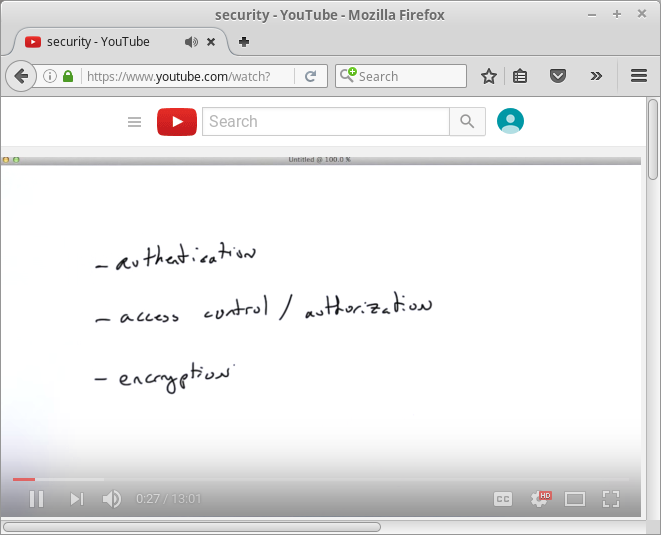 security - YouTube - Mozilla Firefox
security - YouTube
https://www.youtube.com/watch?
Search
Search
Untitled @ 100.0 %
- authentication
- access control / authorization
- encryption
0:27 / 13:01
CC
HD